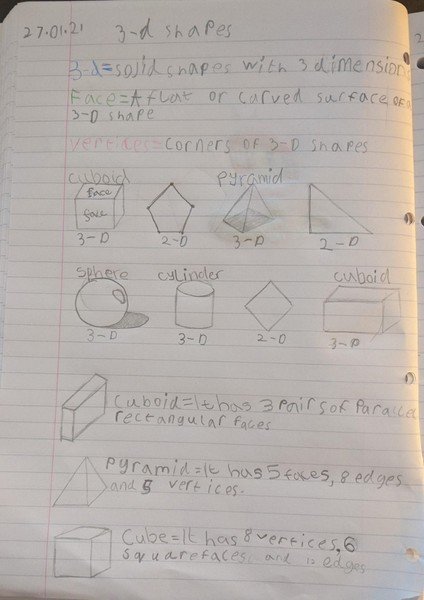 27.01.21 3-d shapes
3-d=solid shapes with 3 dimensions
Face=A flat or carved surface of a
3-D shape
vertices=corners of 3-D shapes
cuboid pyramid
face
face
3-D 2-D 3-D 2-D
sphere cylinder cuboid
3-D 3-D 2-D 3-D
Cuboid=It has 3 Pairs of Parallel
rectangular faces
Pyramid=It has 5 faces, 8 edges
and 5 vertices.
Cube=It has 8 vertices, 6
square faces, and 12 edges